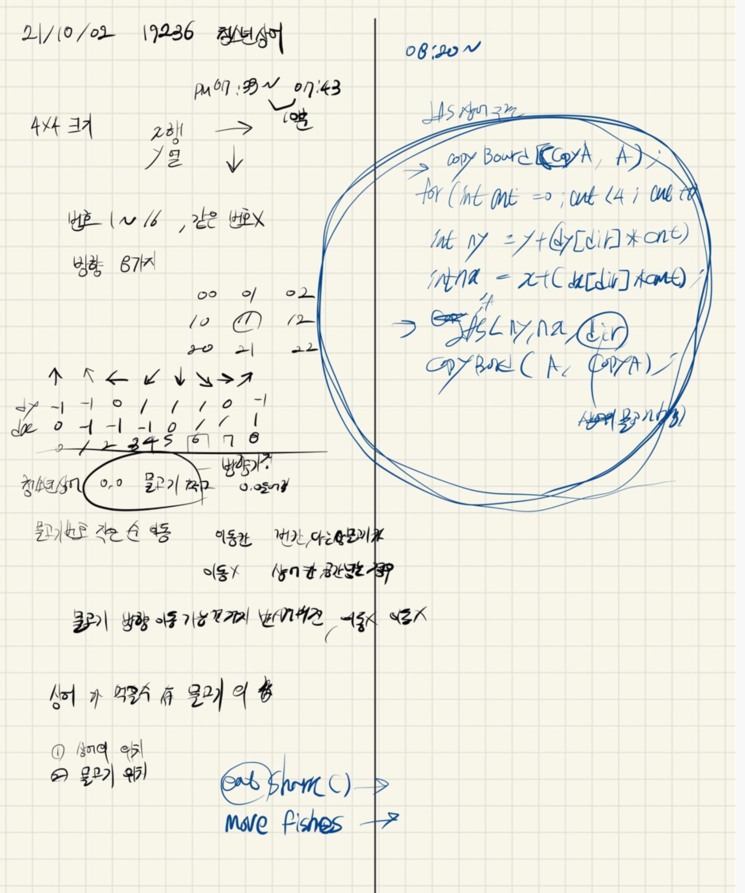 21/10/02 19236 청소년상어
PM 07:33~ 07:43
10분
4x4 크기
x행 →
y열 ↓
번호 1~16, 같은 번호X
방향 8가지
00 01 02
10 11 12
20 21 22
↑ ↖ ← ↙ ↓ ↘ → ↗
dy -1 -1 0 1 1 1 0 -1
dx 0 -1 -1 -1 0 1 1 1
0 1 2 3 4 5 6 7 8
청소년상어 0,0 물고기 먹고 0,0
물고기 번호 작은 순 이동
이동칸 빈칸, 다른 물고기 칸
이동X 상어 칸, 공간 넘는 경우
물고기 방향 이동가능 이동X
상어가 먹을수 有 물고기의 합
① 상어의 위치
② 물고기 위치
eat Shark() →
move fishes →
08:20~
dfs 상어
→ copyBoard(CopyA, A);
for (int cnt =0; cnt<4; cnt++)
int ny = y+(dy[dir]*cnt)
int nx = x+(dx[dir]*cnt);
→ dfs(ny,nx,dir
copyBord(A, CopyA);